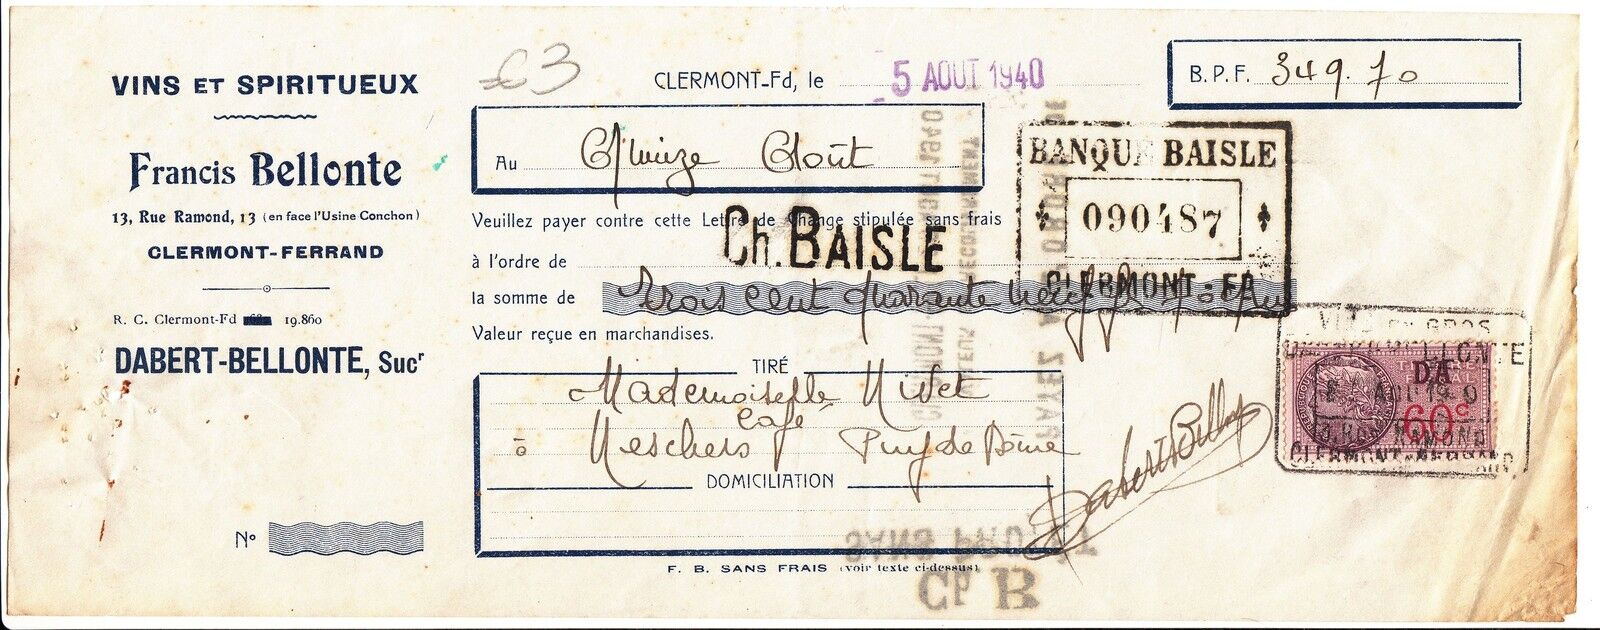 VINS ET SPIRITUEUX
Francis Bellonte
13, Rue Ramond, 13 (en face l'Usine Conchon)
CLERMONT-FERRAND
R. C. Clermont-Fd 19.860
DABERT-BELLONTE, Sucr
No
63
CLERMONT-Fd, le 5 AOUT 1940
B. P. F. 349.70
Au Quinze Août
BANQUE BAISLE
090487
CLERMONT-FD
Veuillez payer contre cette Lettre de Change stipulée sans frais
à l'ordre de Ch. BAISLE
la somme de Trois cent quarante neuf
Valeur reçue en marchandises.
TIRÉ
Mademoiselle Nivet
Café
à Neschers Puy de Dôme
DOMICILIATION
Dabert Bellonte
F. B. SANS FRAIS (voir texte ci-dessus)
VINS EN GROS
DA
60c
RAMOND
CLERMONT-FERRAND
SANS PROTÊT
Ch. B